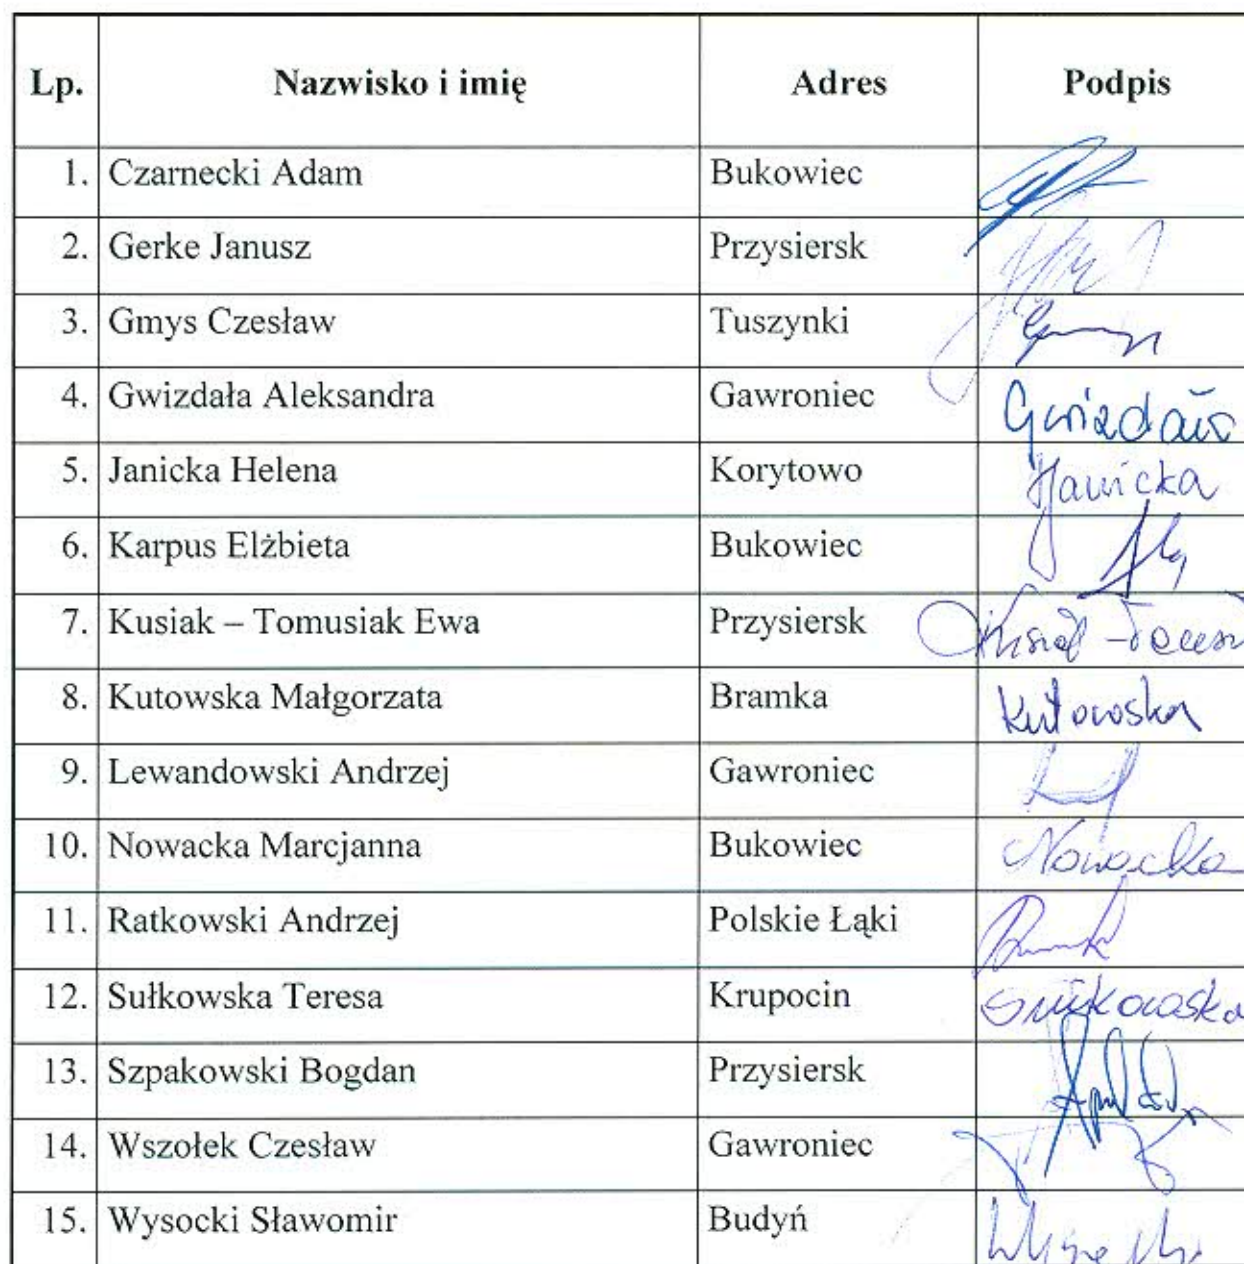 Lp. Nazwisko i imię Adres Podpis
1. Czarnecki Adam Bukowiec
2. Gerke Janusz Przysiersk
3. Gmys Czesław Tuszynki
4. Gwizdała Aleksandra Gawroniec Gwizdała
5. Janicka Helena Korytowo HJanicka
6. Karpus Elżbieta Bukowiec
7. Kusiak – Tomusiak Ewa Przysiersk
8. Kutowska Małgorzata Bramka Kutowska
9. Lewandowski Andrzej Gawroniec
10. Nowacka Marcjanna Bukowiec Nowacka
11. Ratkowski Andrzej Polskie Łąki
12. Sułkowska Teresa Krupocin Sułkowska
13. Szpakowski Bogdan Przysiersk
14. Wszołek Czesław Gawroniec
15. Wysocki Sławomir Budyń